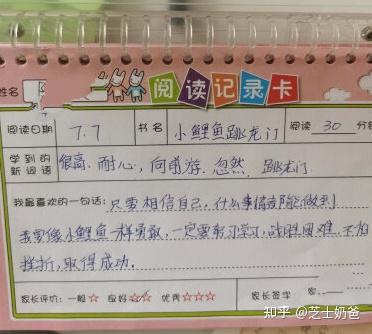 姓名
阅读记录卡
阅读日期 7.7 书名 小鲤鱼跳龙门 阅读 30 分钟
学到的新词语 很高、耐心、向前游、忽然、跳龙门
我最喜欢的一句话：只要相信自己，什么事情都能做到
我要像小鲤鱼一样勇敢，一定要努力学习，战胜困难，不怕
挫折，取得成功。
家长评价：一般☆ 良好☆☆ 优秀☆☆☆ 家长签字
知乎 @芝士奶爸